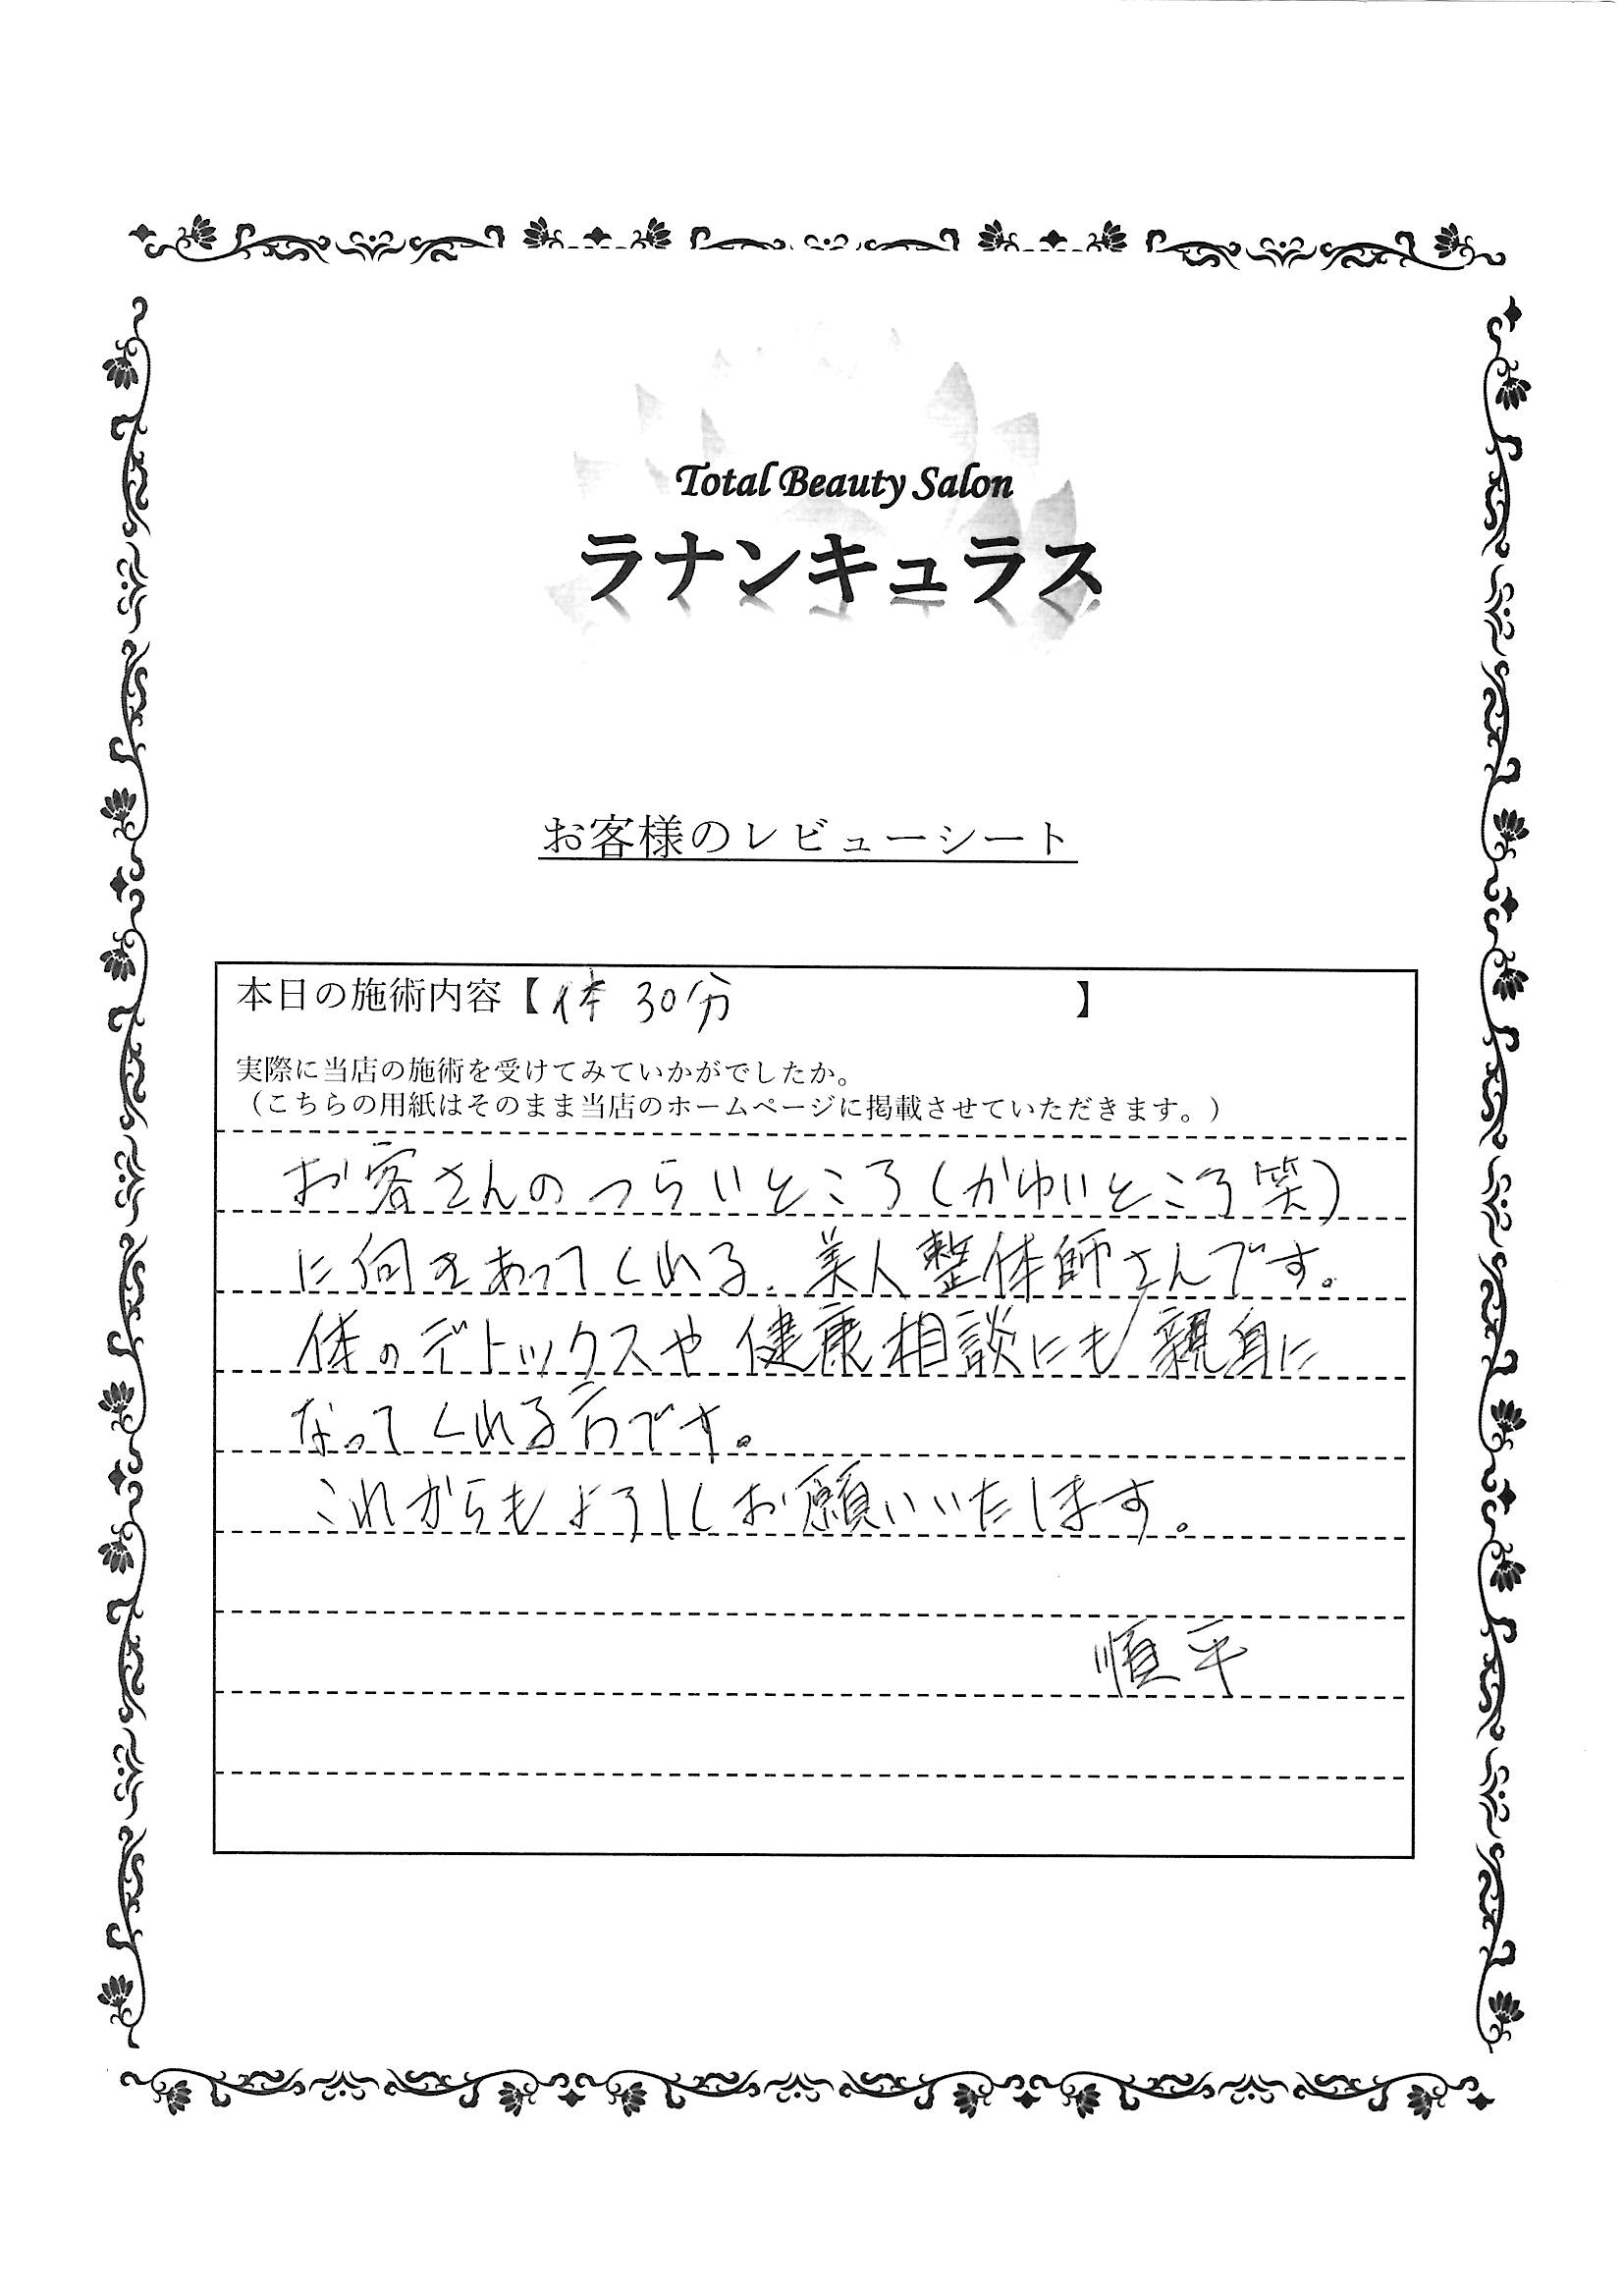 Total Beauty Salon
ラナンキュラス
お客様のレビューシート
本日の施術内容【体 30分】
実際に当店の施術を受けてみていかがでしたか。
（こちらの用紙はそのまま当店のホームページに掲載させていただきます。）
お客さんのつらいところ(かゆいところ笑)
に向きあってくれる、美人整体師さんです。
体のデトックスや健康相談にも親身に
なってくれる方です。
これからもよろしくお願いいたします。
順平